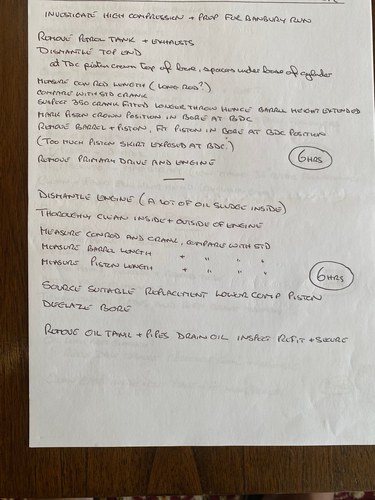 INVESTIGATE HIGH COMPRESSION + PREP FOR BANBURY RUN
REMOVE PETROL TANK + EXHAUSTS
DISMANTLE TOP END
at TDC piston crown top of bore, spacers under base of cylinder
MEASURE CON ROD LENGTH (LONG ROD?)
COMPARE WITH STD CRANK
SUSPECT 350 CRANK FITTED LONGER THROW HENCE BARREL HEIGHT EXTENDED
MARK PISTON CROWN POSITION IN BORE AT BDC
REMOVE BARREL + PISTON, FIT PISTON IN BORE AT BDC POSITION
(TOO MUCH PISTON SKIRT EXPOSED AT BDC.)
REMOVE PRIMARY DRIVE AND ENGINE
6HRS
DISMANTLE ENGINE (A LOT OF OIL SLUDGE INSIDE)
THOROUGHLY CLEAN INSIDE + OUTSIDE OF ENGINE
MEASURE CONROD AND CRANK, COMPARE WITH STD
MEASURE BARREL LENGTH + " " "
MEASURE PISTON LENGTH + " " "
6HRS
SOURCE SUITABLE REPLACEMENT LOWER COMP PISTON
DEGLAZE BORE
REMOVE OIL TANK + PIPES DRAIN OIL INSPECT REFIT + SECURE